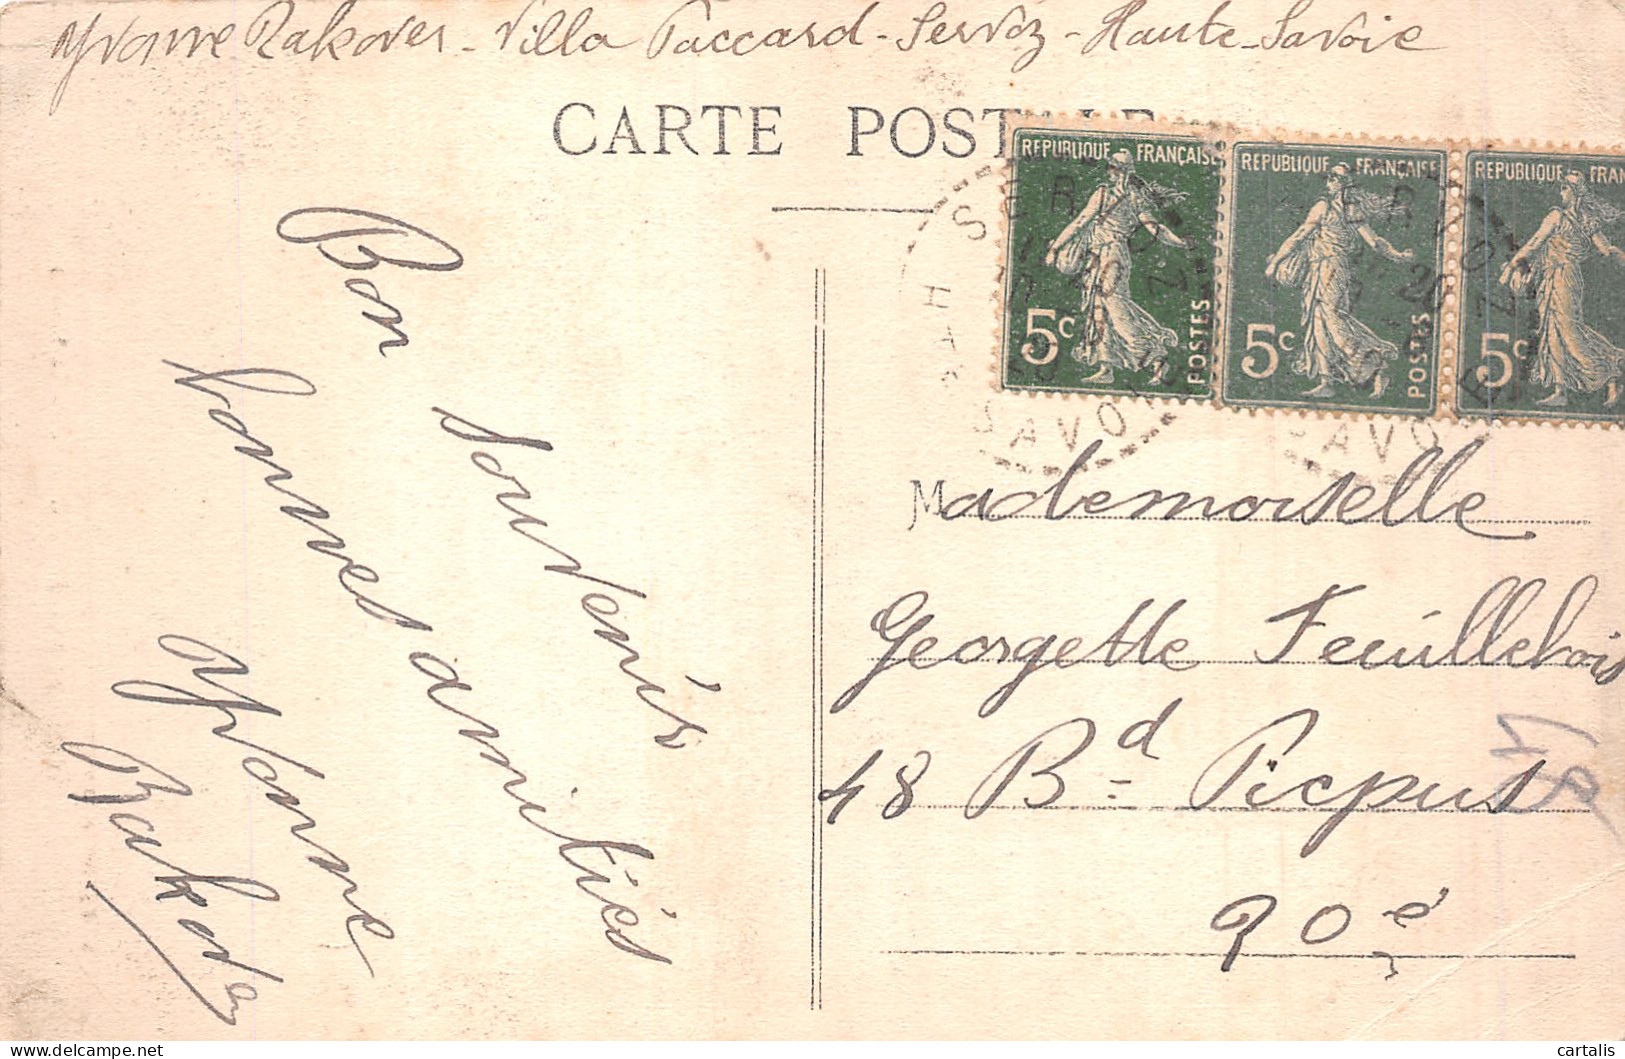 Yvonne Rakover - Villa Paccard - Servoz - Haute-Savoie
CARTE POSTALE
REPUBLIQUE FRANÇAISE
5c POSTES
REPUBLIQUE FRANÇAISE
5c POSTES
REPUBLIQUE FRAN
5c
SERVOZ
20
HTE SAVOIE
ERVOZ
20
SAVO
Bon souvenir
bonnes amitiés
Yvonne
Rakover
Mademoiselle
Georgette Feuillebois
48 Bd Picpus
20è
cartalis